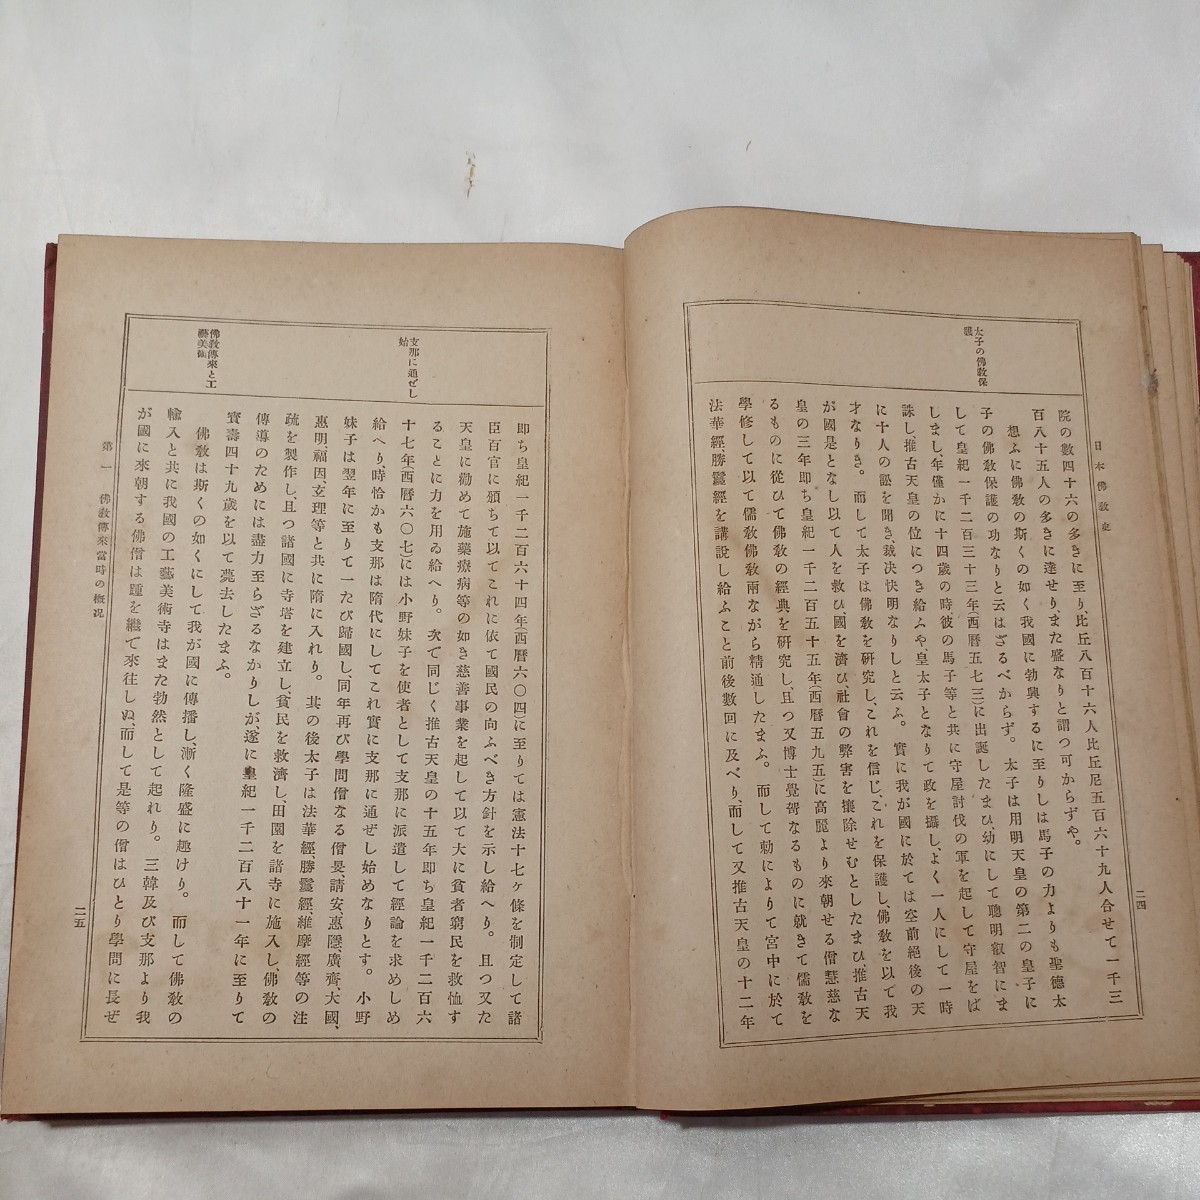 日本佛敎史
二四
太子の佛敎保
護
院の數四十六の多きに至り、比丘八百十六人比丘尼五百六十九人合せて一千三
百八十五人の多きに達せり、また盛なりと謂つ可からずや。
想ふに佛敎の斯くの如く我國に勃興するに至りしは馬子の力よりも聖德太
子の佛敎保護の功なりと云はざるべからず。太子は用明天皇の第二の皇子に
して皇紀一千二百三十三年(西曆五七三)に出誕したまひ幼にして聰明叡智にま
しまし、年僅かに十四歲の時彼の馬子等と共に守屋討伐の軍を起して守屋をば
誅し、推古天皇の位につき給ふや、皇太子となりて政を攝し、よく一人にして一時
に十人の訟を聞き、裁決快明なりしと云ふ。實に我が國に於ては空前絕後の天
才なりき。而して太子は佛敎を硏究し、これを信じ、これを保護し、佛敎を以て我
が國是となし以て人を救ひ國を濟ひ、社會の弊害を攘除せむとしたまひ、推古天
皇の三年即ち皇紀一千二百五十五年(西曆五九五)に高麗より來朝せる僧慧慈な
るものに從ひて佛敎の經典を硏究し、且つ又博士覺哿なるものに就きて儒敎を
學修して以て儒敎佛敎兩ながら精通したまふ。而して勅によりて宮中に於て
法華經、勝鬘經を講說し給ふこと前後數回に及べり、而して又推古天皇の十二年
支那に通ぜし
始
佛敎傳來と工
藝美術
即ち皇紀一千二百六十四年(西曆六〇四)に至りては憲法十七ヶ條を制定して諸
臣百官に頒ちて以てこれに依て國民の向ふべき方針を示し給へり。且つ又た
天皇に勸めて施藥療病等の如き慈善事業を起して以て大に貧者窮民を救恤す
ることに力を用ゐ給へり。次で同じく推古天皇の十五年即ち皇紀一千二百六
十七年(西曆六〇七)には小野妹子を使者として支那に派遣して經論を求めしめ
給へり、時恰かも支那は隋代にしてこれ實に支那に通ぜし始めなりとす。小野
妹子は翌年に至りて一たび歸國し、同年再び學問僧なる僧旻、請安、惠隱、廣齊、大國、
惠明、福因、玄理等と共に隋に入れり。其の後太子は法華經、勝鬘經、維摩經等の注
疏を製作し、且つ諸國に寺塔を建立し、貧民を救濟し、田園を諸寺に施入し、佛敎の
傳導のためには盡力至らざるなかりしが、遂に皇紀一千二百八十一年に至りて
寳壽四十九歲を以て薨去したまふ。
佛敎は斯くの如くにして我が國に傳播し、漸く隆盛に趣けり。而して佛敎の
輸入と共に我國の工藝美術等はまた勃然として起れり。三韓及び支那より我
が國に來朝する佛僧は踵を繼で來往しぬ、而して是等の僧はひとり學問に長ぜ
第一 佛敎傳來當時の槪況
二五